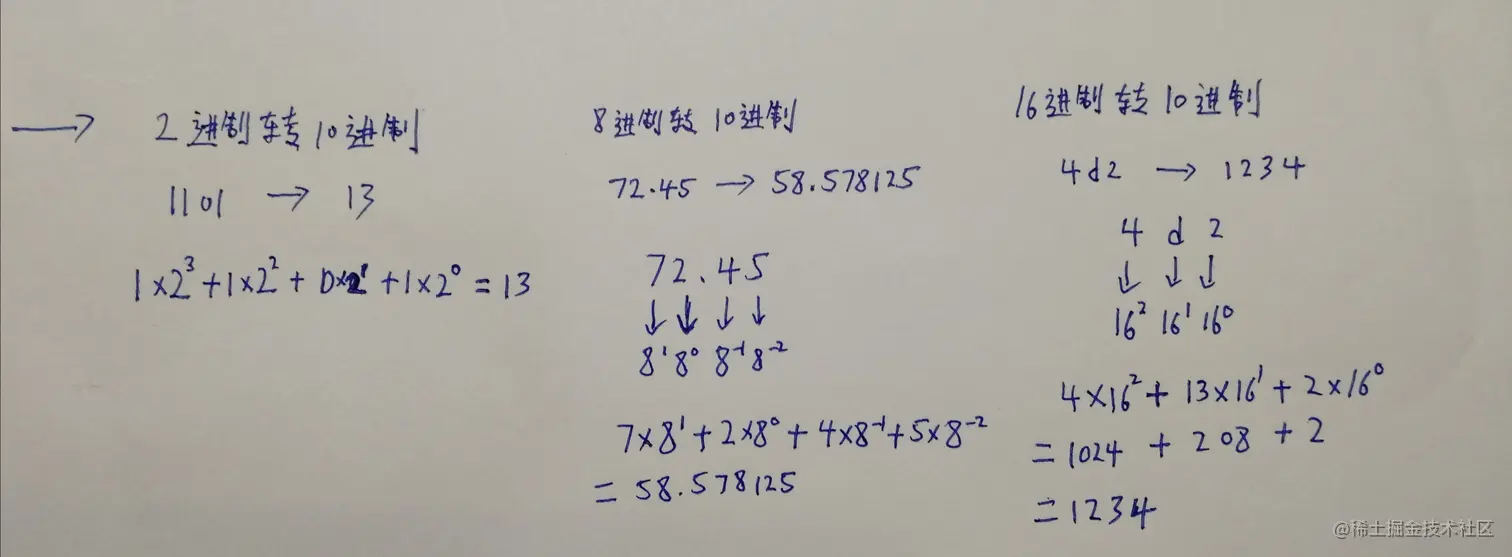 → 2进制转10进制
1101 → 13
1×2³+1×2²+0×2¹+1×2⁰=13
8进制转10进制
72.45 → 58.578125
72.45
↓ ↓ ↓ ↓
8¹ 8⁰ 8⁻¹ 8⁻²
7×8¹+2×8⁰+4×8⁻¹+5×8⁻²
=58.578125
16进制转10进制
4d2 → 1234
4 d 2
↓ ↓ ↓
16² 16¹ 16⁰
4×16²+13×16¹+2×16⁰
=1024+208+2
=1234
@稀土掘金技术社区